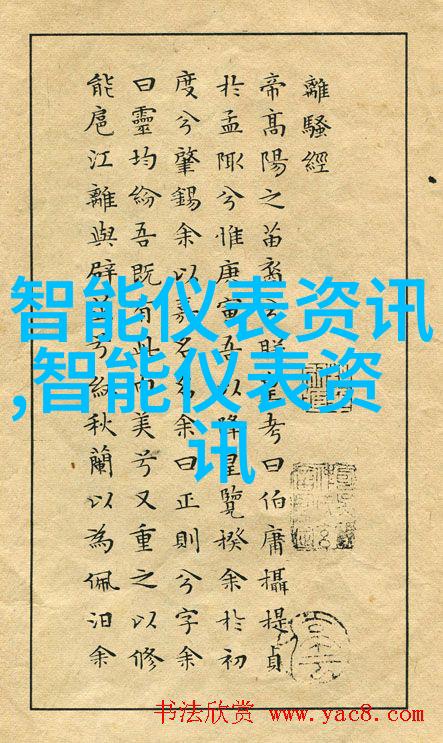 離騷經
帝高陽之苗裔兮朕皇考曰伯庸攝提貞
於孟陬兮惟庚寅吾以降皇覽揆余於初
度兮肇錫余以嘉名名余曰正則兮字余
曰靈均紛吾既有此內美兮又重之以修
能扈江離與辟芷兮紉秋蘭以為佩汩余
智能仪表资讯
,智能仪表资
讯
书法欣赏 www.yac8.com